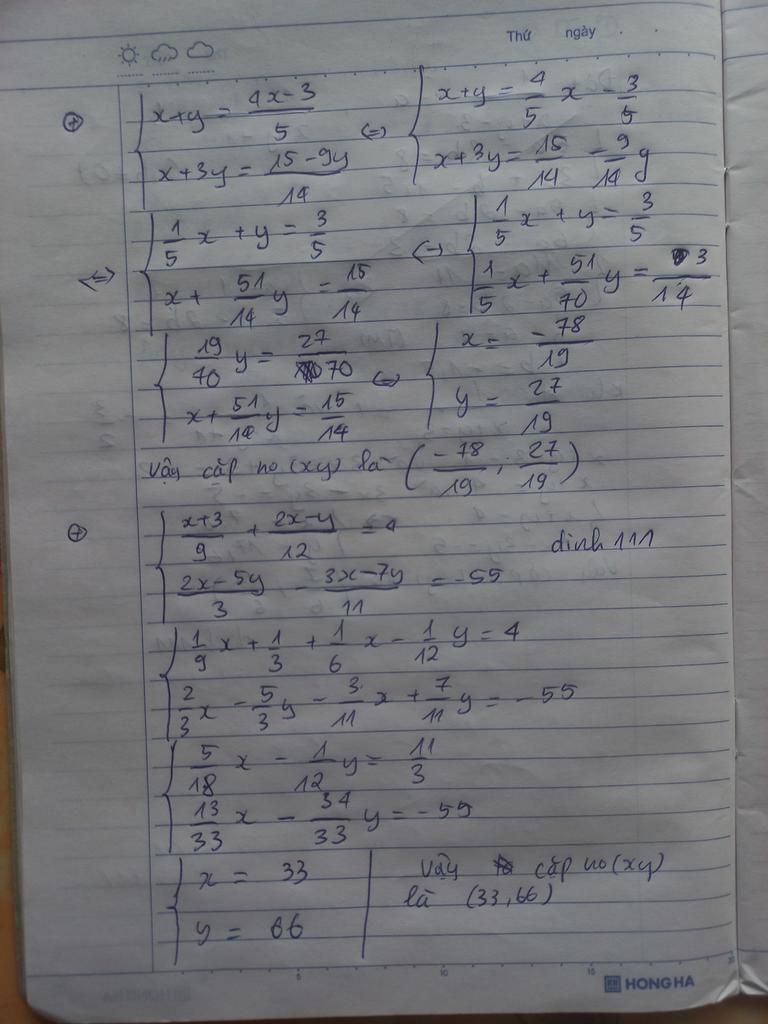 Thứ ngày . .
⊕ { x+y = (4x-3)/5 ; x+3y = (15-9y)/14 <=> { x+y = 4/5 x - 3/5 ; x+3y = 15/14 - 9/14 y
<=> { 1/5 x + y = 3/5 ; x + 51/14 y = 15/14 <=> { 1/5 x + y = 3/5 ; 1/5 x + 51/70 y = 3/14
{ 19/70 y = 27/70 ; x + 51/14 y = 15/14 <=> { x = -78/19 ; y = 27/19
Vậy cặp no (xy) là (-78/19 ; 27/19)
⊕ { (x+3)/9 + (2x-y)/12 = 4 ; (2x-5y)/3 - (3x-7y)/11 = -55
dinh 111
{ 1/9 x + 1/3 + 1/6 x - 1/12 y = 4 ; 2/3 x - 5/3 y - 3/11 x + 7/11 y = -55
{ 5/18 x - 1/12 y = 11/3 ; 13/33 x - 34/33 y = -55
{ x = 33 ; y = 66
Vậy cặp no (xy)
là (33,66)
5 10 15
HONG HA